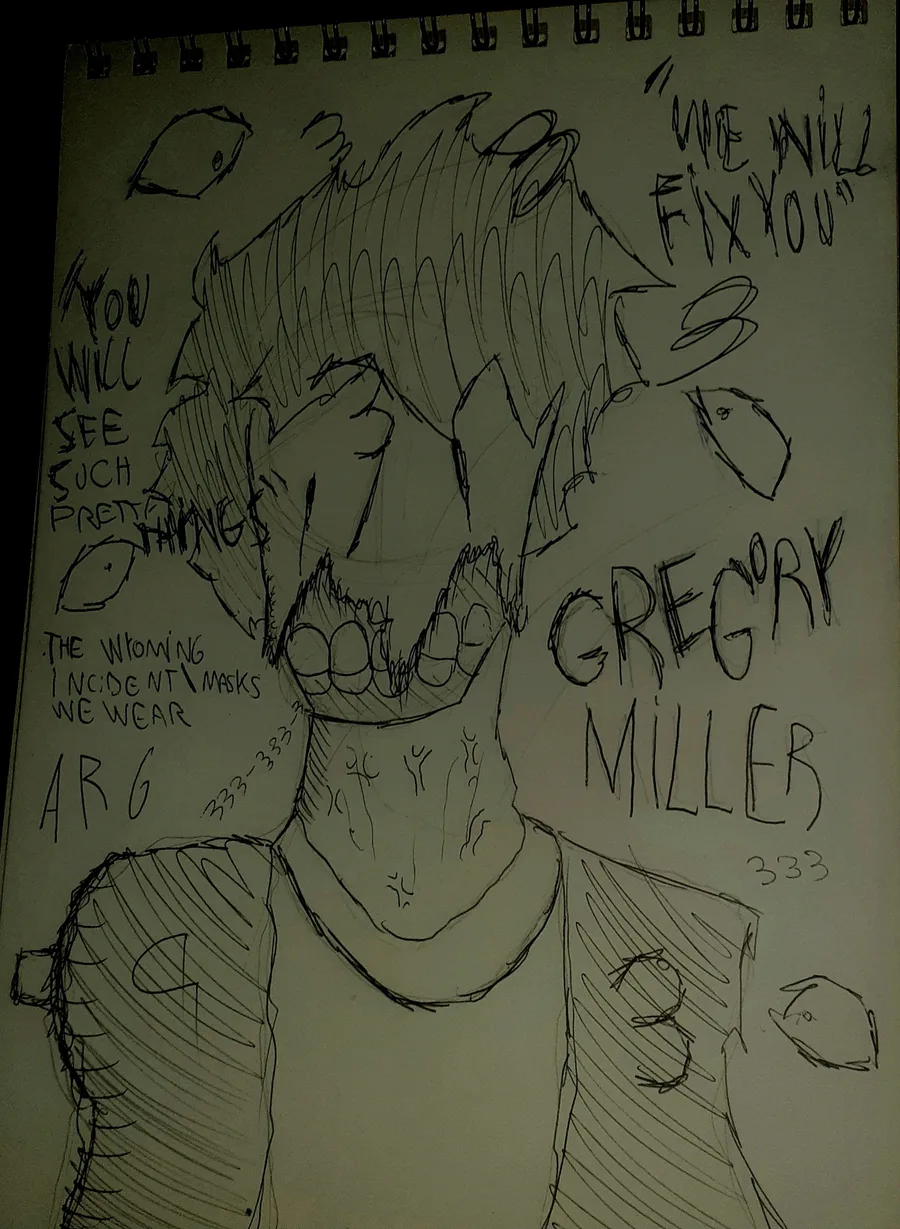 "WE WILL
FIX YOU"
3
3
3
"YOU
WILL
SEE
SUCH
PRETTY
THINGS"
THE WYOMING
INCIDENT\MASKS
WE WEAR
ARG
333-333-3
GREGORY
MILLER
333
3